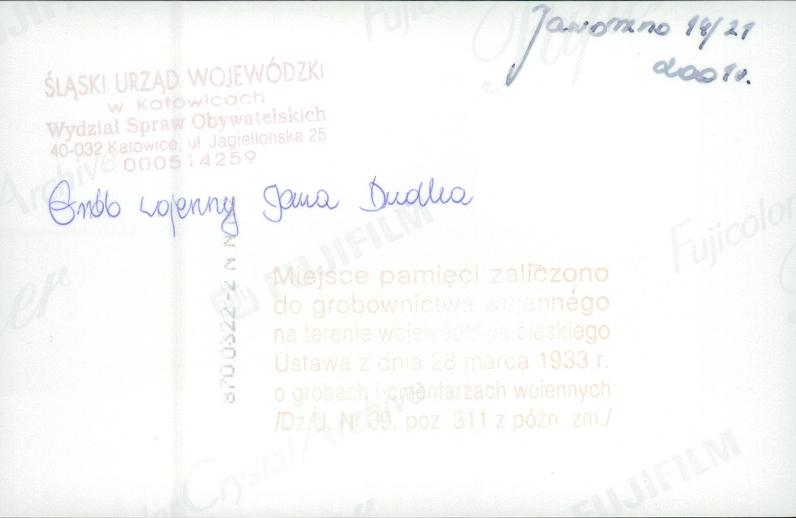 Jaworzno 14/21
2001r.
ŚLĄSKI URZĄD WOJEWÓDZKI
w Katowicach
Wydział Spraw Obywatelskich
40-032 Katowice, ul Jagiellońska 25
000514259
Grób wojenny Jana Dudka
Miejsce pamięci zaliczono
do grobownictwa wojennego
na terenie województwa śląskiego
Ustawa z dnia 28 marca 1933 r.
o grobach i cmentarzach wojennych
/Dz.U. Nr 39, poz. 311 z późn. zm./
FUJIFILM
Fujicolor
Crystal Archive
FUJIFILM